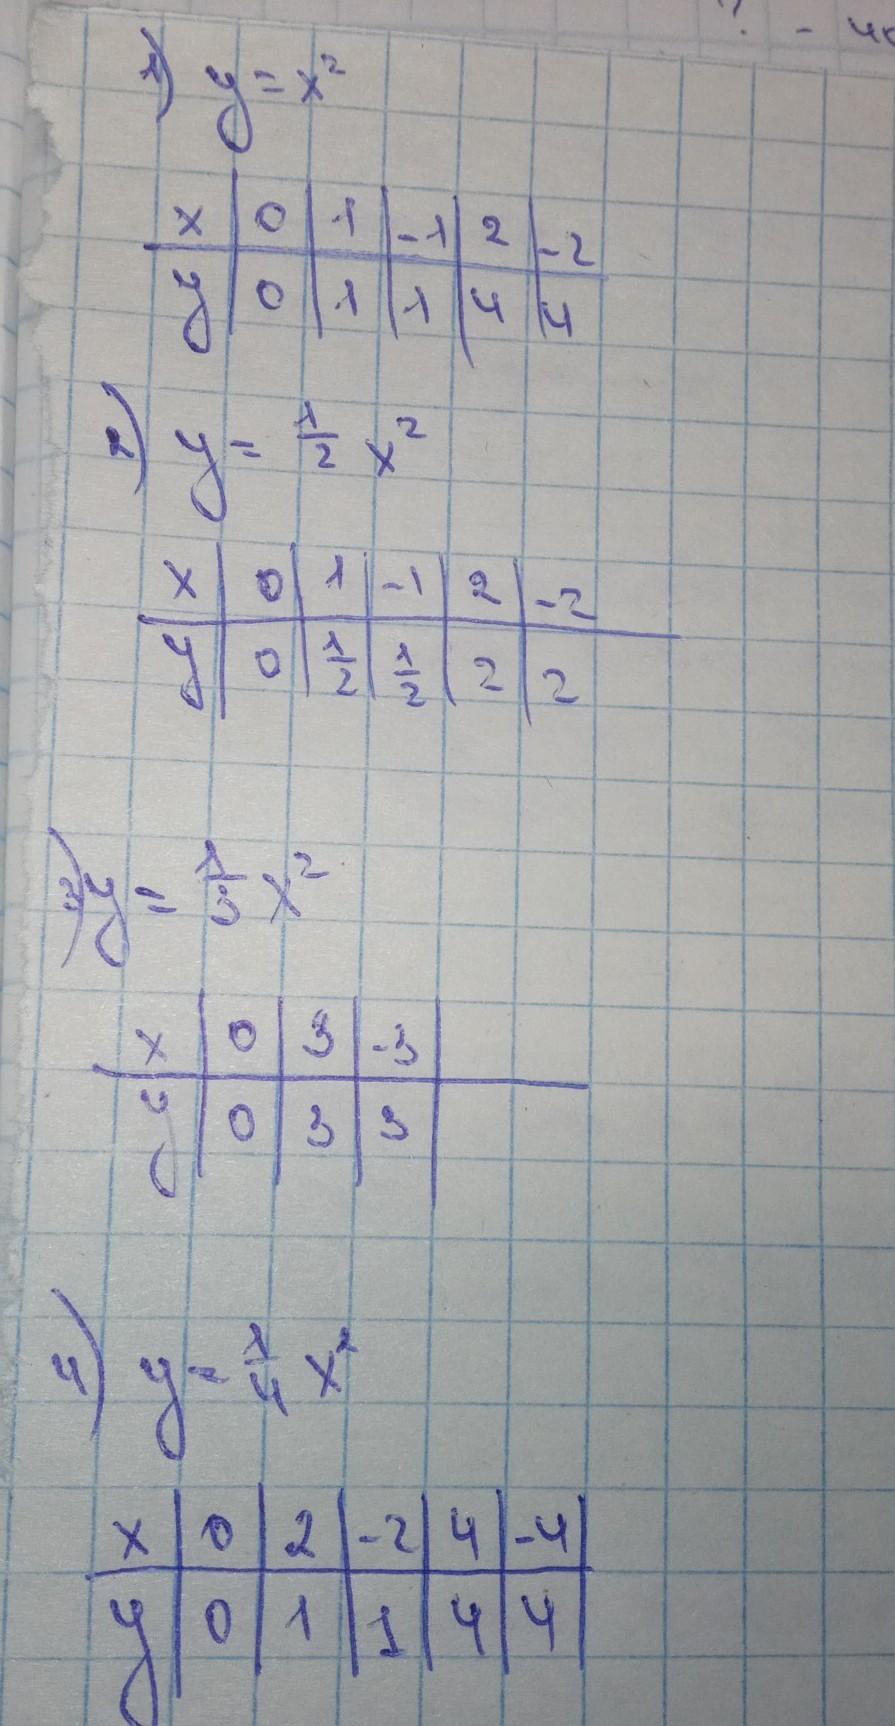 ? - 4
1) y = x²
x 0 1 -1 2 -2
y 0 1 1 4 4
2) y = 1/2 x²
x 0 1 -1 2 -2
y 0 1/2 1/2 2 2
3) y = 1/3 x²
x 0 3 -3
y 0 3 3
4) y = 1/4 x²
x 0 2 -2 4 -4
y 0 1 1 4 4